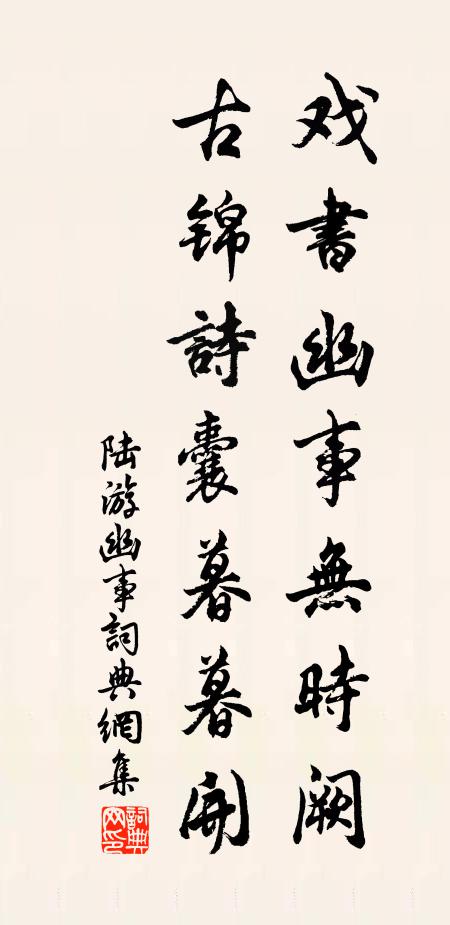 戏書幽事無時闕
古錦詩囊暮暮開
陆游幽事詞典網集
詞典網印